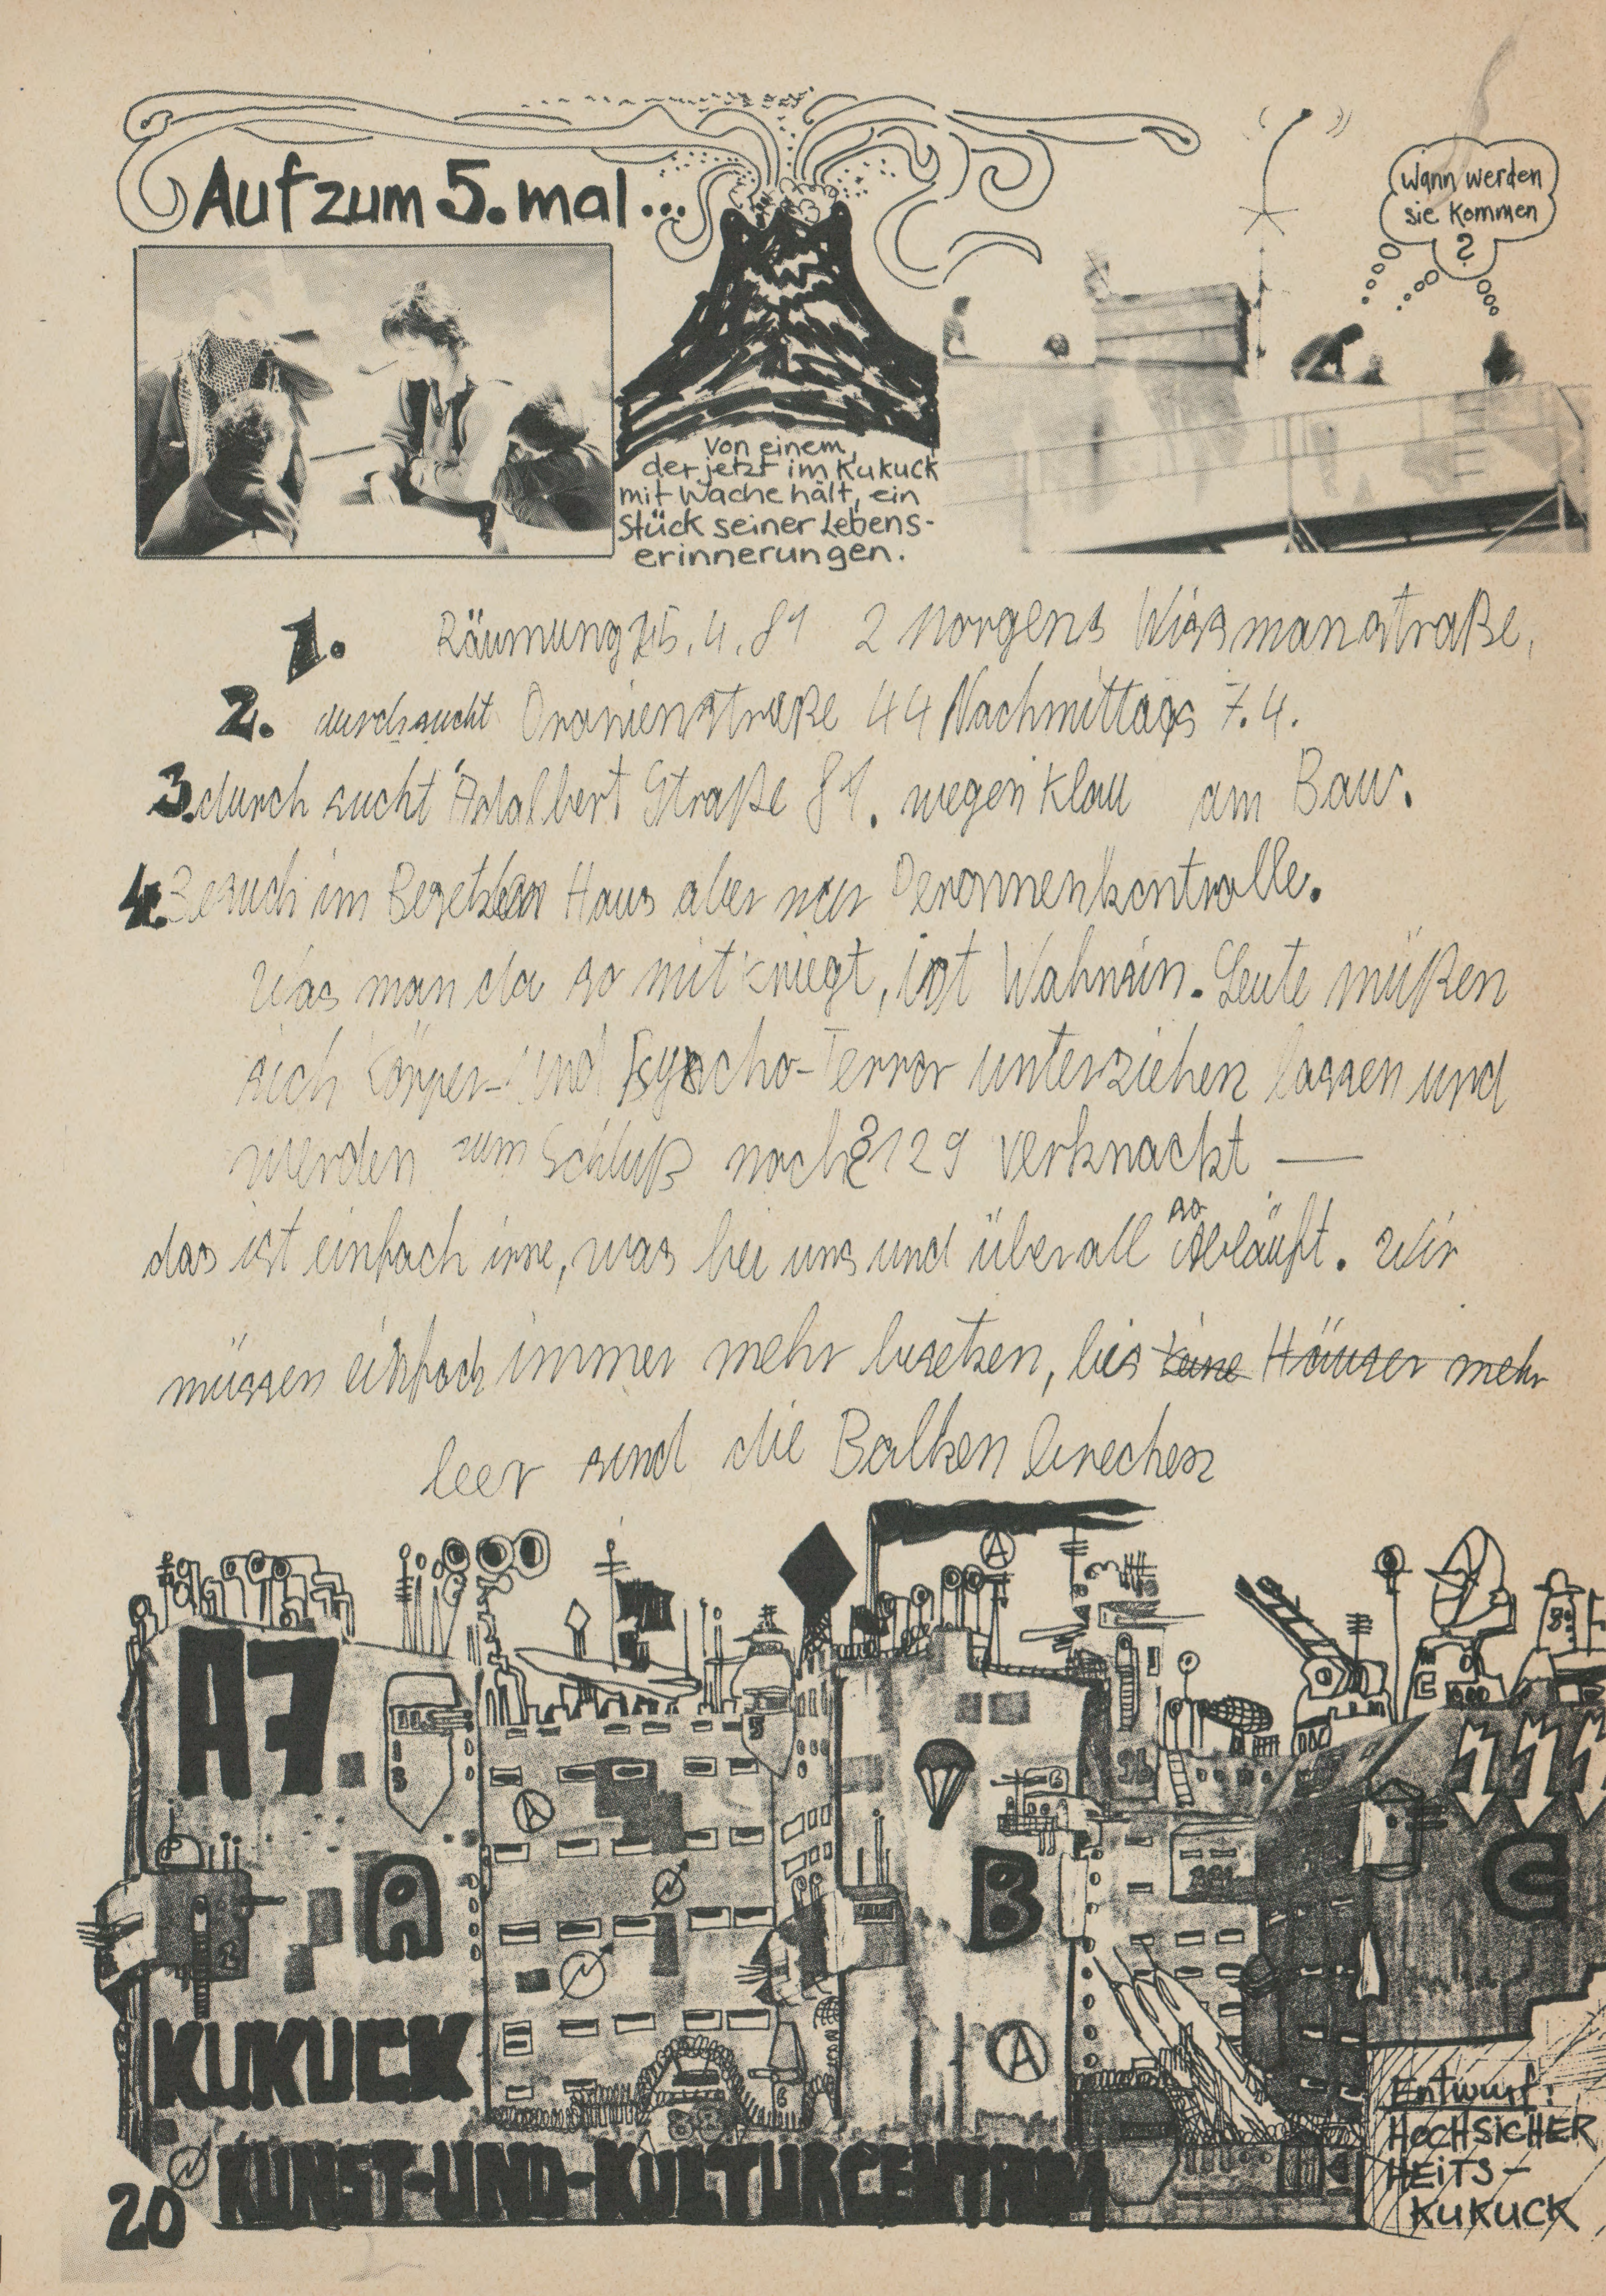 Auf zum 5. mal...
Wann werden
sie kommen
?
Von einem,
der jetzt im Kukuck
mit Wache hält, ein
Stück seiner Lebens-
erinnerungen.
1. Räumung 5.4.81 2 Morgens Wissmanstraße,
2. durchsucht Oranienstraße 44 Nachmittags 7.4.
3. durch sucht Adalbert Straße 81. wegen Klau am Bau.
4. Besuch im Besetzten Haus aber nur Personnenkontrolle.
Was man da so mitkriegt, ist Wahnsin. Leute müßen
sich Körper- und Psycho-Terror unterziehen lassen und
werden zum Schluß noch § 129 verknackt —
das ist einfach irre, was bei uns und überall so Abläuft. Wir
müssen einfach immer mehr besetzen, bis keine Häuser mehr
leer sind die Balken brechen
A7.
A
B
C
A
KUKUCK
88
KUNST-UND-KULTURCENTRUM
Entwurf:
HOCHSICHER
HEITS-
KUKUCK
20